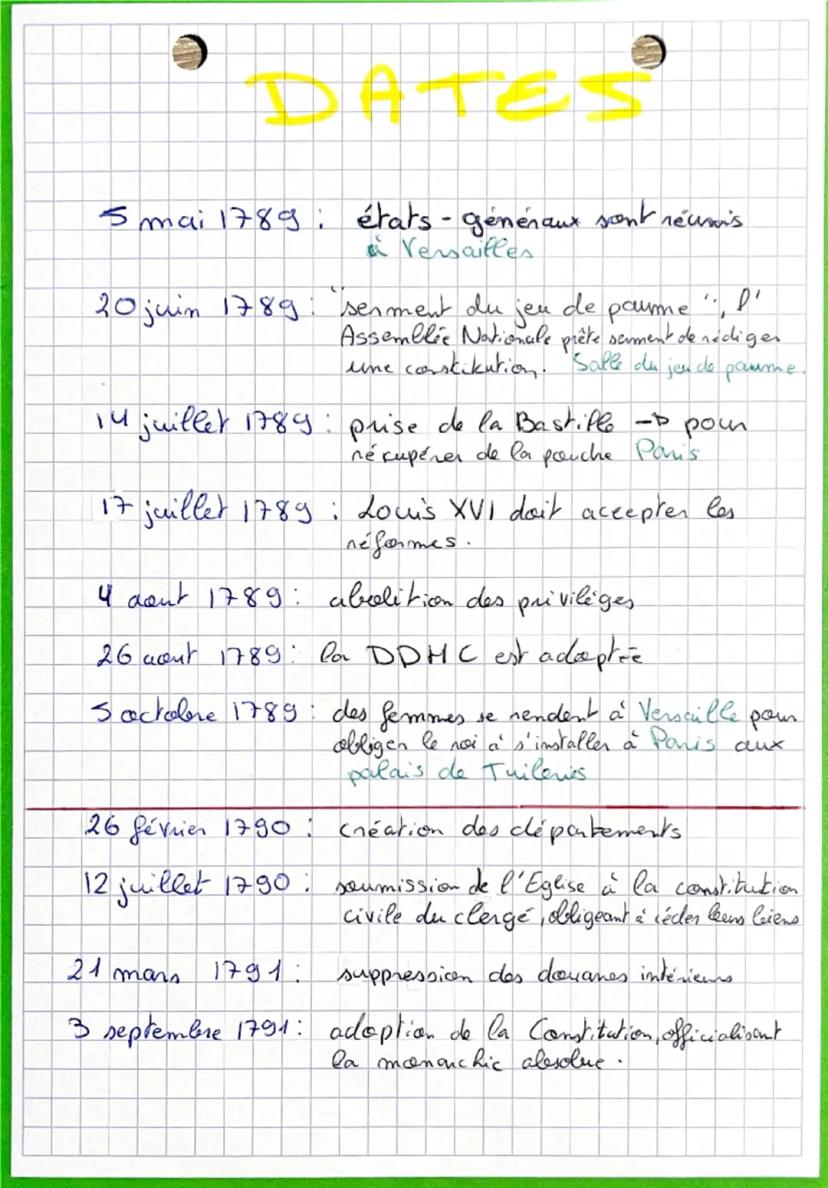 DATES
5 mai 1789 : états - généraux sont réunis
à Versailles
20 juin 1789 : "serment du jeu de paume", l'
Assemblée Nationale prête serment de rédiger
une constitution. Salle du jeu de paume.
14 juillet 1789 : prise de la Bastille → pour
récupérer de la pouche Paris
17 juillet 1789 : Louis XVI doit accepter les
réformes.
4 aout 1789 : abolition des privilèges
26 aout 1789 : la DDHC est adoptée
5 octobre 1789 : des femmes se rendent à Versaille pour
obliger le roi à s'installer à Paris aux
palais de Tuileries
26 février 1790 : création des départements
12 juillet 1790 : soumission de l'Eglise à la constitution
civile du clergé, obligeant à céder leurs biens
21 mars 1791 : suppression des douanes intérieurs
3 septembre 1791 : adoption de la Constitution, officialisant
la monarchie absolue.